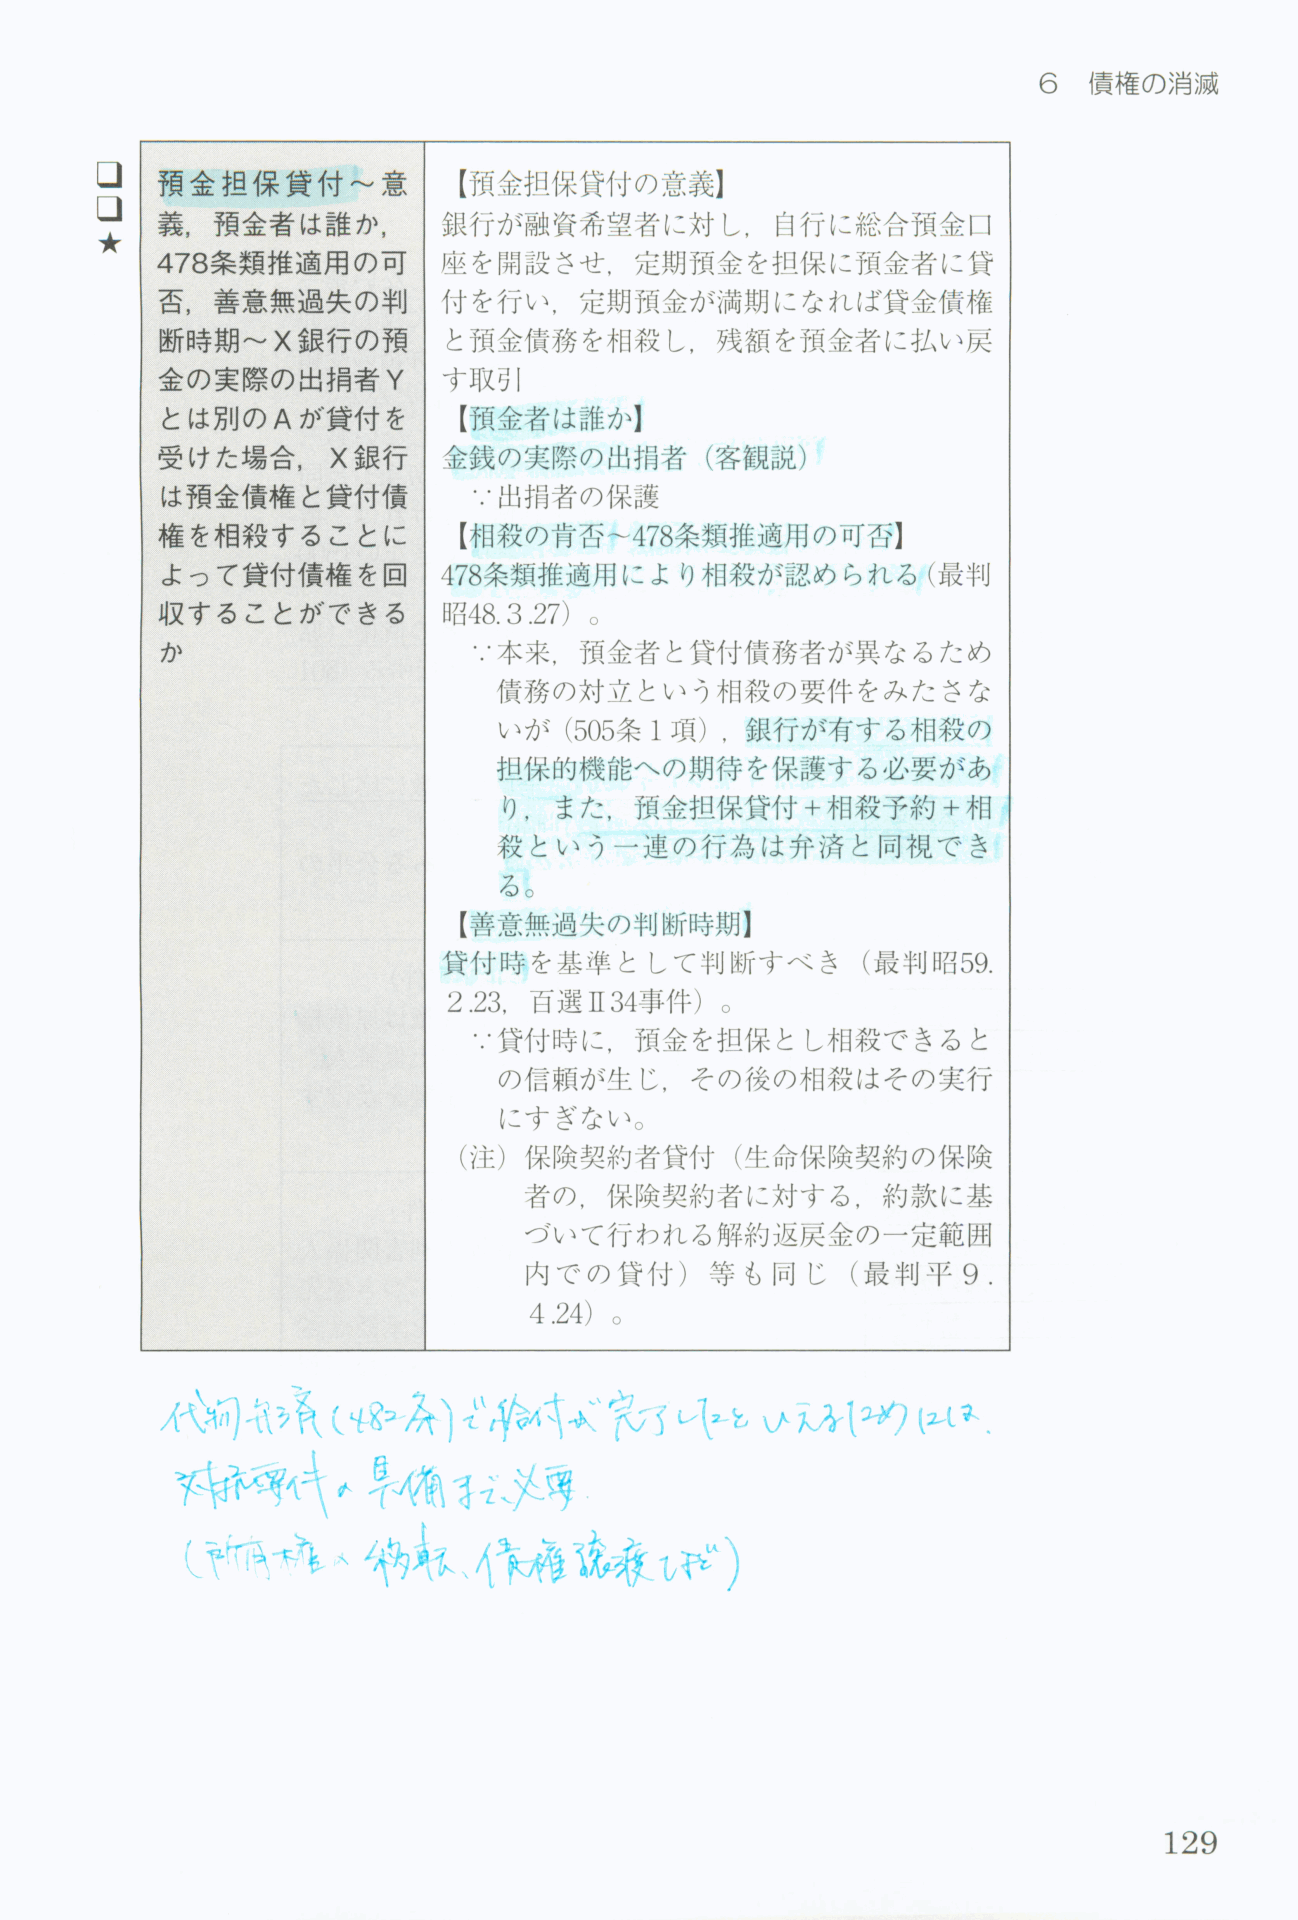 6　債権の消滅
❏
❏
★
預金担保貸付～意
義，預金者は誰か，
478条類推適用の可
否，善意無過失の判
断時期～Ｘ銀行の預
金の実際の出捐者Ｙ
とは別のＡが貸付を
受けた場合，Ｘ銀行
は預金債権と貸付債
権を相殺することに
よって貸付債権を回
収することができる
か
【預金担保貸付の意義】
銀行が融資希望者に対し，自行に総合預金口
座を開設させ，定期預金を担保に預金者に貸
付を行い，定期預金が満期になれば貸金債権
と預金債務を相殺し，残額を預金者に払い戻
す取引
【預金者は誰か】
金銭の実際の出捐者（客観説）
∵出捐者の保護
【相殺の肯否～478条類推適用の可否】
478条類推適用により相殺が認められる（最判
昭48.３.27）。
∵本来，預金者と貸付債務者が異なるため
債務の対立という相殺の要件をみたさな
いが（505条１項），銀行が有する相殺の
担保的機能への期待を保護する必要があ
り，また，預金担保貸付＋相殺予約＋相
殺という一連の行為は弁済と同視でき
る。
【善意無過失の判断時期】
貸付時を基準として判断すべき（最判昭59.
２.23，百選Ⅱ34事件）。
∵貸付時に，預金を担保とし相殺できると
の信頼が生じ，その後の相殺はその実行
にすぎない。
（注）保険契約者貸付（生命保険契約の保険
者の，保険契約者に対する，約款に基
づいて行われる解約返戻金の一定範囲
内での貸付）等も同じ（最判平９.
４.24）。
代物弁済(482条)で給付が完了したといえるためには、
対抗要件の具備まで必要
(所有権の移転、債権譲渡など)
129